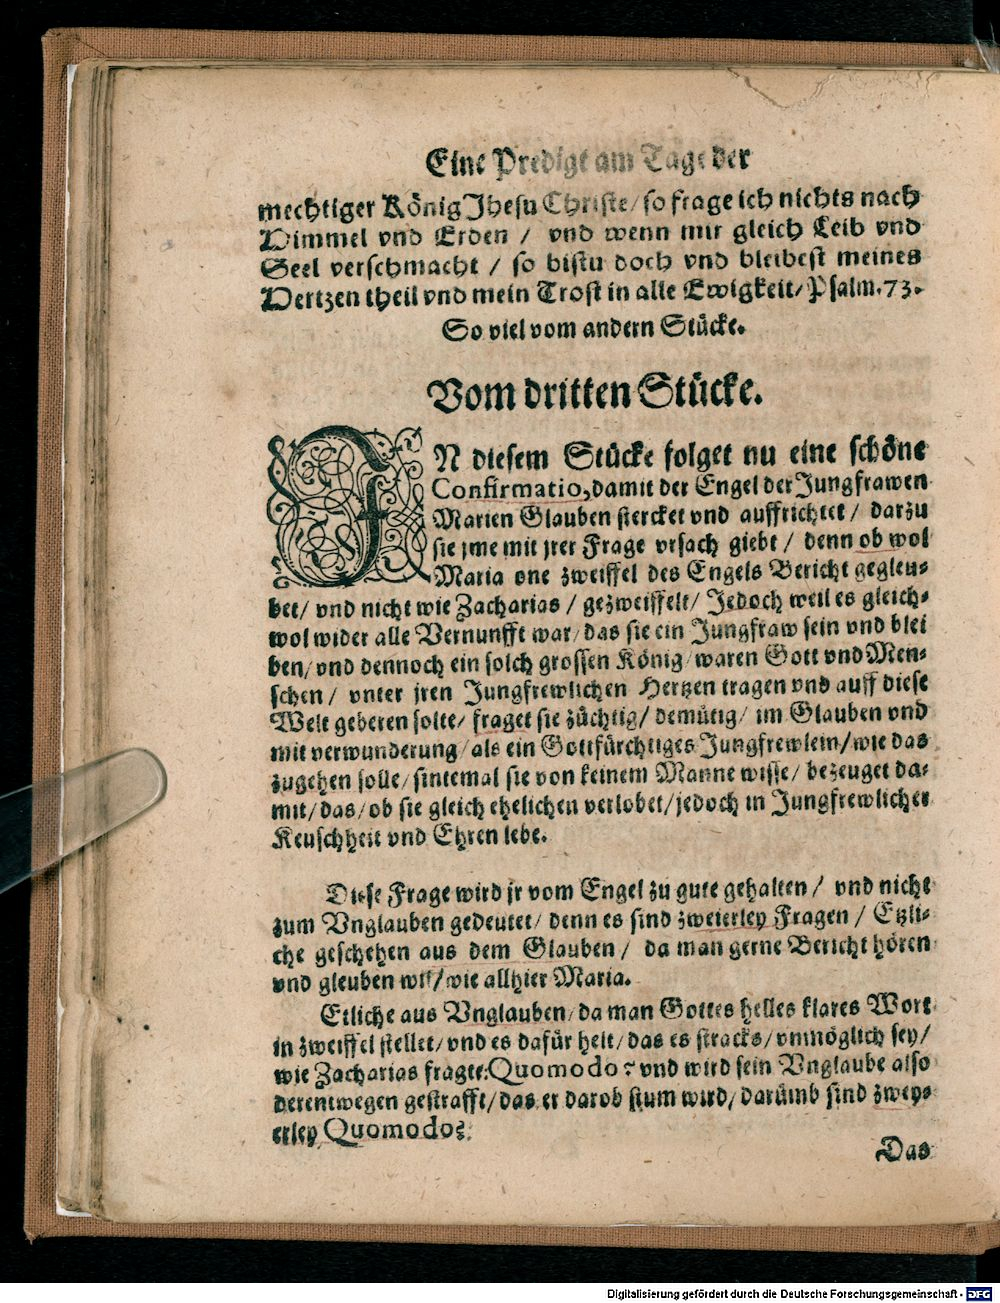 Eine Predigt am Tage der
mechtiger König Jhesu Christe/ so frage ich nichts nach
Himmel vnd Erden / vnd wenn mir gleich Leib vnd
Seel verschmacht / so bistu doch vnd bleibest meines
Hertzen theil vnd mein Trost in alle Ewigkeit/ Psalm. 73.
So viel vom andern Stücke.
Vom dritten Stücke.
IN diesem Stücke folget nu eine schöne
Confirmatio, damit der Engel der Jungfrawen
Marien Glauben stercket vnd auffrichtet / darzu
sie jme mit jrer Frage vrsach giebt / denn ob wol
Maria one zweiffel des Engels Bericht gegleu-
bet/ vnd nicht wie Zacharias / gezweiffelt/ Jedoch weil es gleich-
wol wider alle Vernunfft war/ das sie ein Jungfraw sein vnd blei
ben/ vnd dennoch ein solch grossen König/ waren Gott vnd Men-
schen / vnter jren Jungfrewlichen Hertzen tragen vnd auff diese
Welt geberen solte/ fraget sie züchtig/ demütig/ im Glauben vnd
mit verwunderung/ als ein Gottfürchtiges Jungfrewlein/ wie das
zugehen solle/ sintemal sie von keinem Manne wisse/ bezeuget da-
mit/ das/ ob sie gleich ehelichen verlobet/ jedoch in Jungfrewlicher
Keuschheit vnd Ehren lebe.
Diese Frage wird jr vom Engel zu gute gehalten / vnd nicht
zum Vnglauben gedeutet/ denn es sind zweierley Fragen / Etzli-
che geschehen aus dem Glauben / da man gerne Bericht hören
vnd gleuben wil/ wie allhier Maria.
Etliche aus Vnglauben/ da man Gottes helles klares Wort
in zweiffel stellet/ vnd es dafür helt/ das es stracks/ vnmöglich sey/
wie Zacharias fragte: Quomodo? vnd wird sein Vnglaube also
derentwegen gestrafft/ das er darob stum wird/ darümb sind zwey-
erley Quomodo?
Das
Digitalisierung gefördert durch die Deutsche Forschungsgemeinschaft - DFG